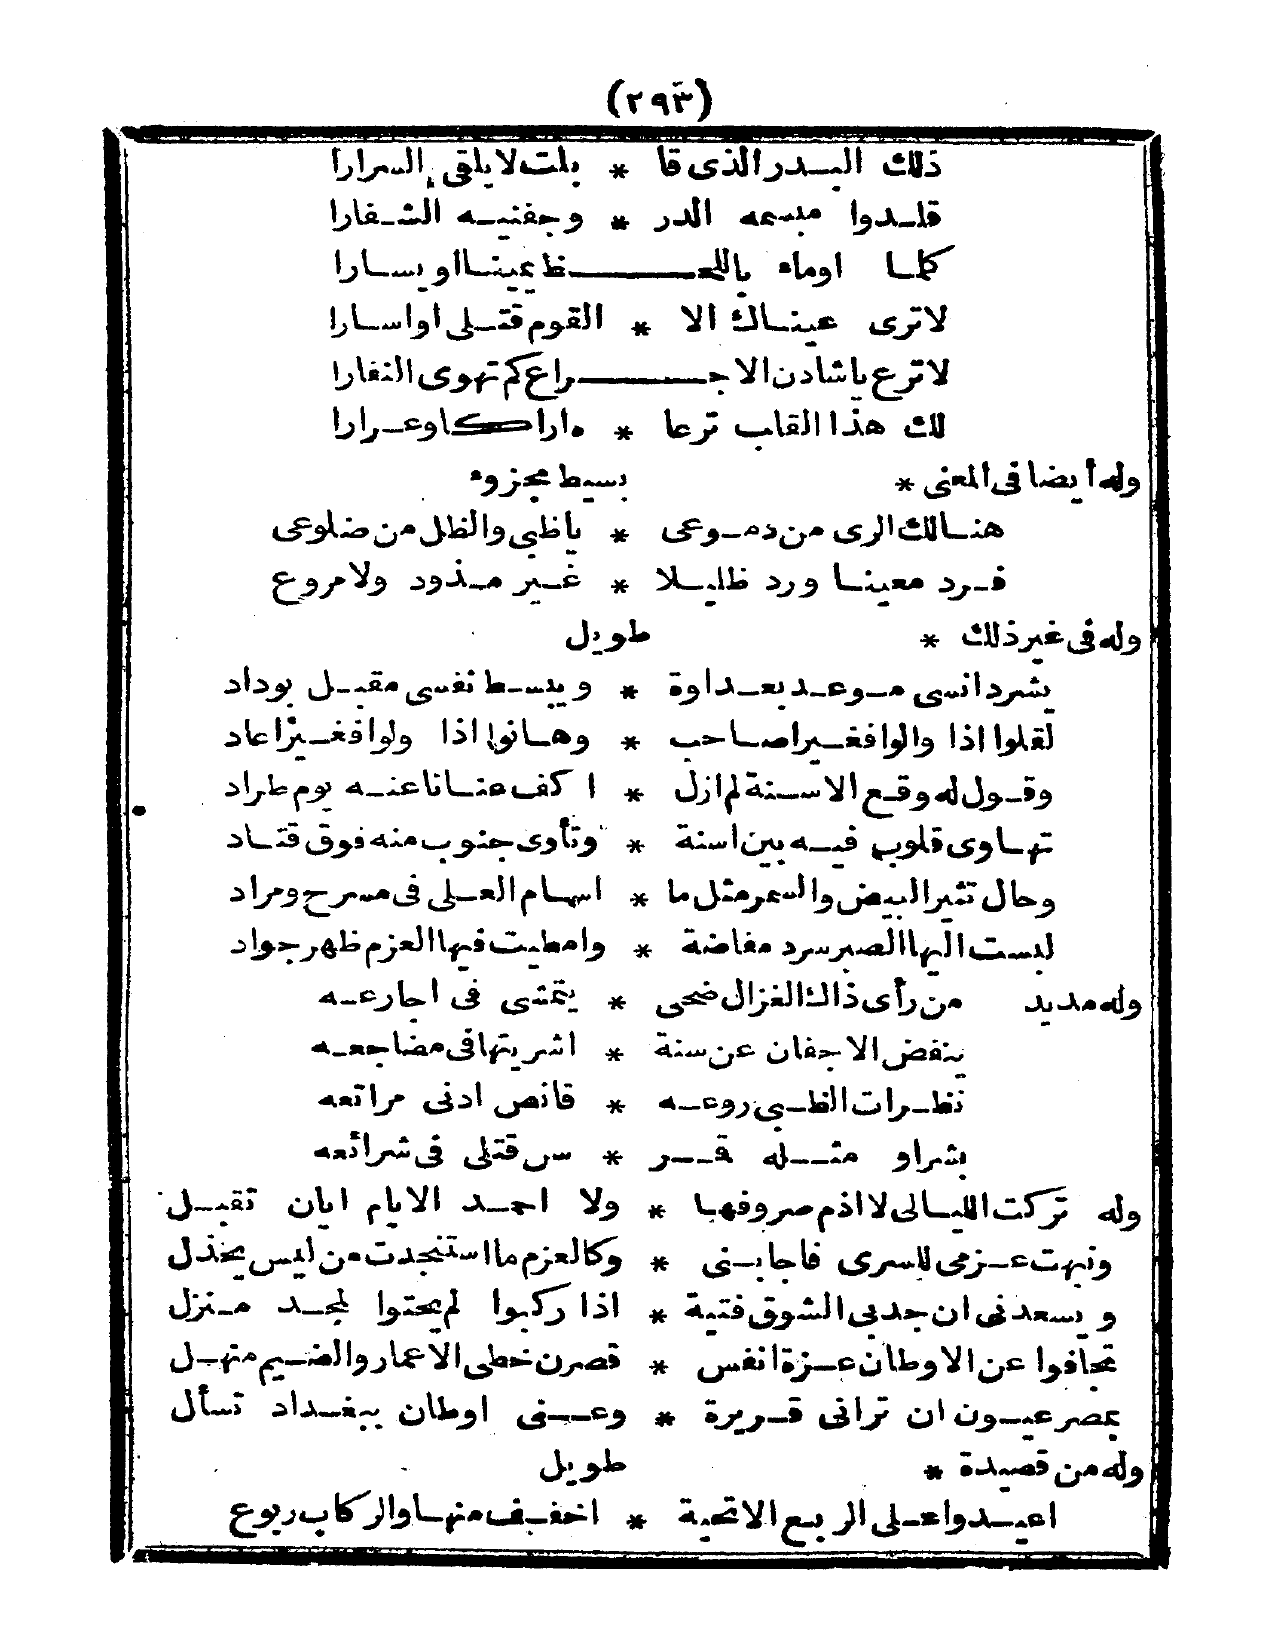 (٢٩٣)
ذلك البدر الذى قا * بلت لا يلقى السرارا
قلدوا مبسمه الدر * وجفنيه الشفارا
كلما اوماء باللحظ عينا او يسارا
لا ترى عيناك الا * القوم قتلى او اسارا
لا ترع يا شادن الاجراع كم تهوى النفارا
لك هذا القاب ترعا * ه اراكا وعرارا
وله أيضا فى المعنى * بسيط مجزوء
هنالك الرى من دموعى * يا ظبى والظل من ضلوعى
فرد معينا ورد ظليلا * غير مذود ولا مروع
وله فى غير ذلك * طويل
يشرد انسى موعد بعداوة * ويبسط نفسى مقبل بوداد
لقلوا اذا والوا فغير اصاحب * وهانوا اذا ولوا فغير أعاد
وقول له وقع الاسنة لم ازل * اكف عنانا عنه يوم طراد
تهاوى قلوب فيه بين اسنة * وتأوى جنوب منه فوق قتاد
وحال تثير البيض والسمر مثل ما * اسهام العلى فى مسرح ومراد
لبست اليها الصبر سرد مفاضة * وامطيت فيها العزم ظهر جواد
وله مديد من رأى ذاك الغزال ضحى * يتمشى فى اجارعه
ينفض الاجفان عن سنة * اشربتها فى مضاجعه
نظرات الظبى روعه * قانص ادنى مراتعه
بشر او مثله قمر * سن قتلى فى شرائعه
وله تركت الليالى لا اذم صروفها * ولا احمد الايام ايان تقبل
ونبهت عزمى للسرى فاجابنى * وكالعزم ما استنجدت من ليس يخذل
ويسعدنى ان جد بى الشوق فتية * اذا ركبوا لم يحتوا المجد منزل
تجافوا عن الاوطان عزة انفس * قصرن خطى الاعمار والضيم منهل
بمصر عيون ان ترانى قريرة * وعنى اوطان ببغداد تسأل
وله من قصيدة * طويل
اعيدوا على الربع الاتحية * اخفيف منها والركاب ربوع